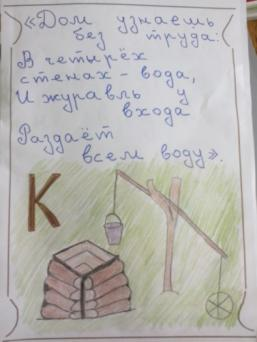 «Дом узнаешь
без труда:
В четырёх
стенах - вода,
И журавль у
входа
Раздаёт
всем воду».
К